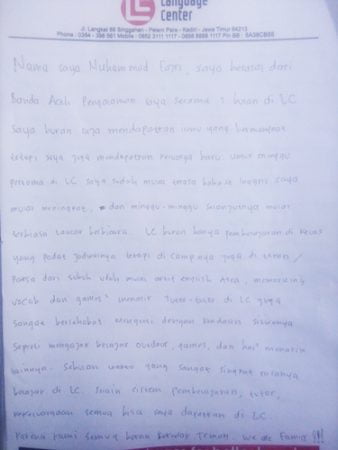 Language
Center
Jl. Langkat 88 Singgahan - Pelem Pare - Kediri - Jawa Timur 64213
Nama saya Muhammad Fajri, saya berasal dari
Banda Aceh Pengalaman saya selama 1 bulan di LC
saya bukan saja mendapatkan ilmu yang bermanfaat
tetapi saya juga mendapatkan keluarga baru. untuk minggu
pertama di LC saya sudah mulai terasa bahasa inggris saya
mulai meningkat, dan minggu-minggu selanjutnya mulai
terbiasa lancar berbicara. LC bukan hanya pembelajaran di kelas
yang padat jadwalnya tetapi di camp nya juga di
dari subuh udah mulai English Area, memorizing
vocab dan games. Tutor-tutor di LC juga
sangat bersahabat. dengan keadaan siswanya
seperti mengajar belajar outdoor, games, dan hal menarik
lainnya. Sebulan waktu yang sangat singkat rasanya
belajar di LC. sistem pembelajaran, tutor,
kekeluargaan semua bisa saya dapatkan di LC.
Karena kami semua bukan sekedar Teman, we are Family !!!